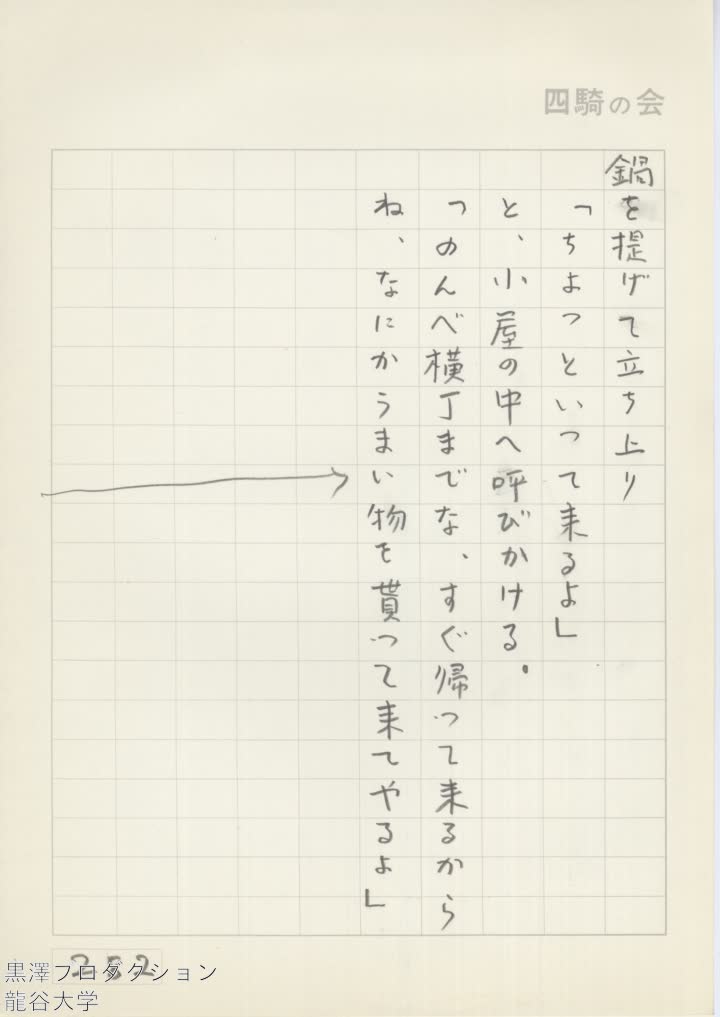 四騎の会
鍋を提げて立ち上り
「ちょっといって来るよ」
と、小屋の中へ呼びかける。
「のんべ横丁までな、すぐ帰って来るから
ね、なにかうまい物を貰って来てやるよ」
252
黒澤プロダクション
龍谷大学